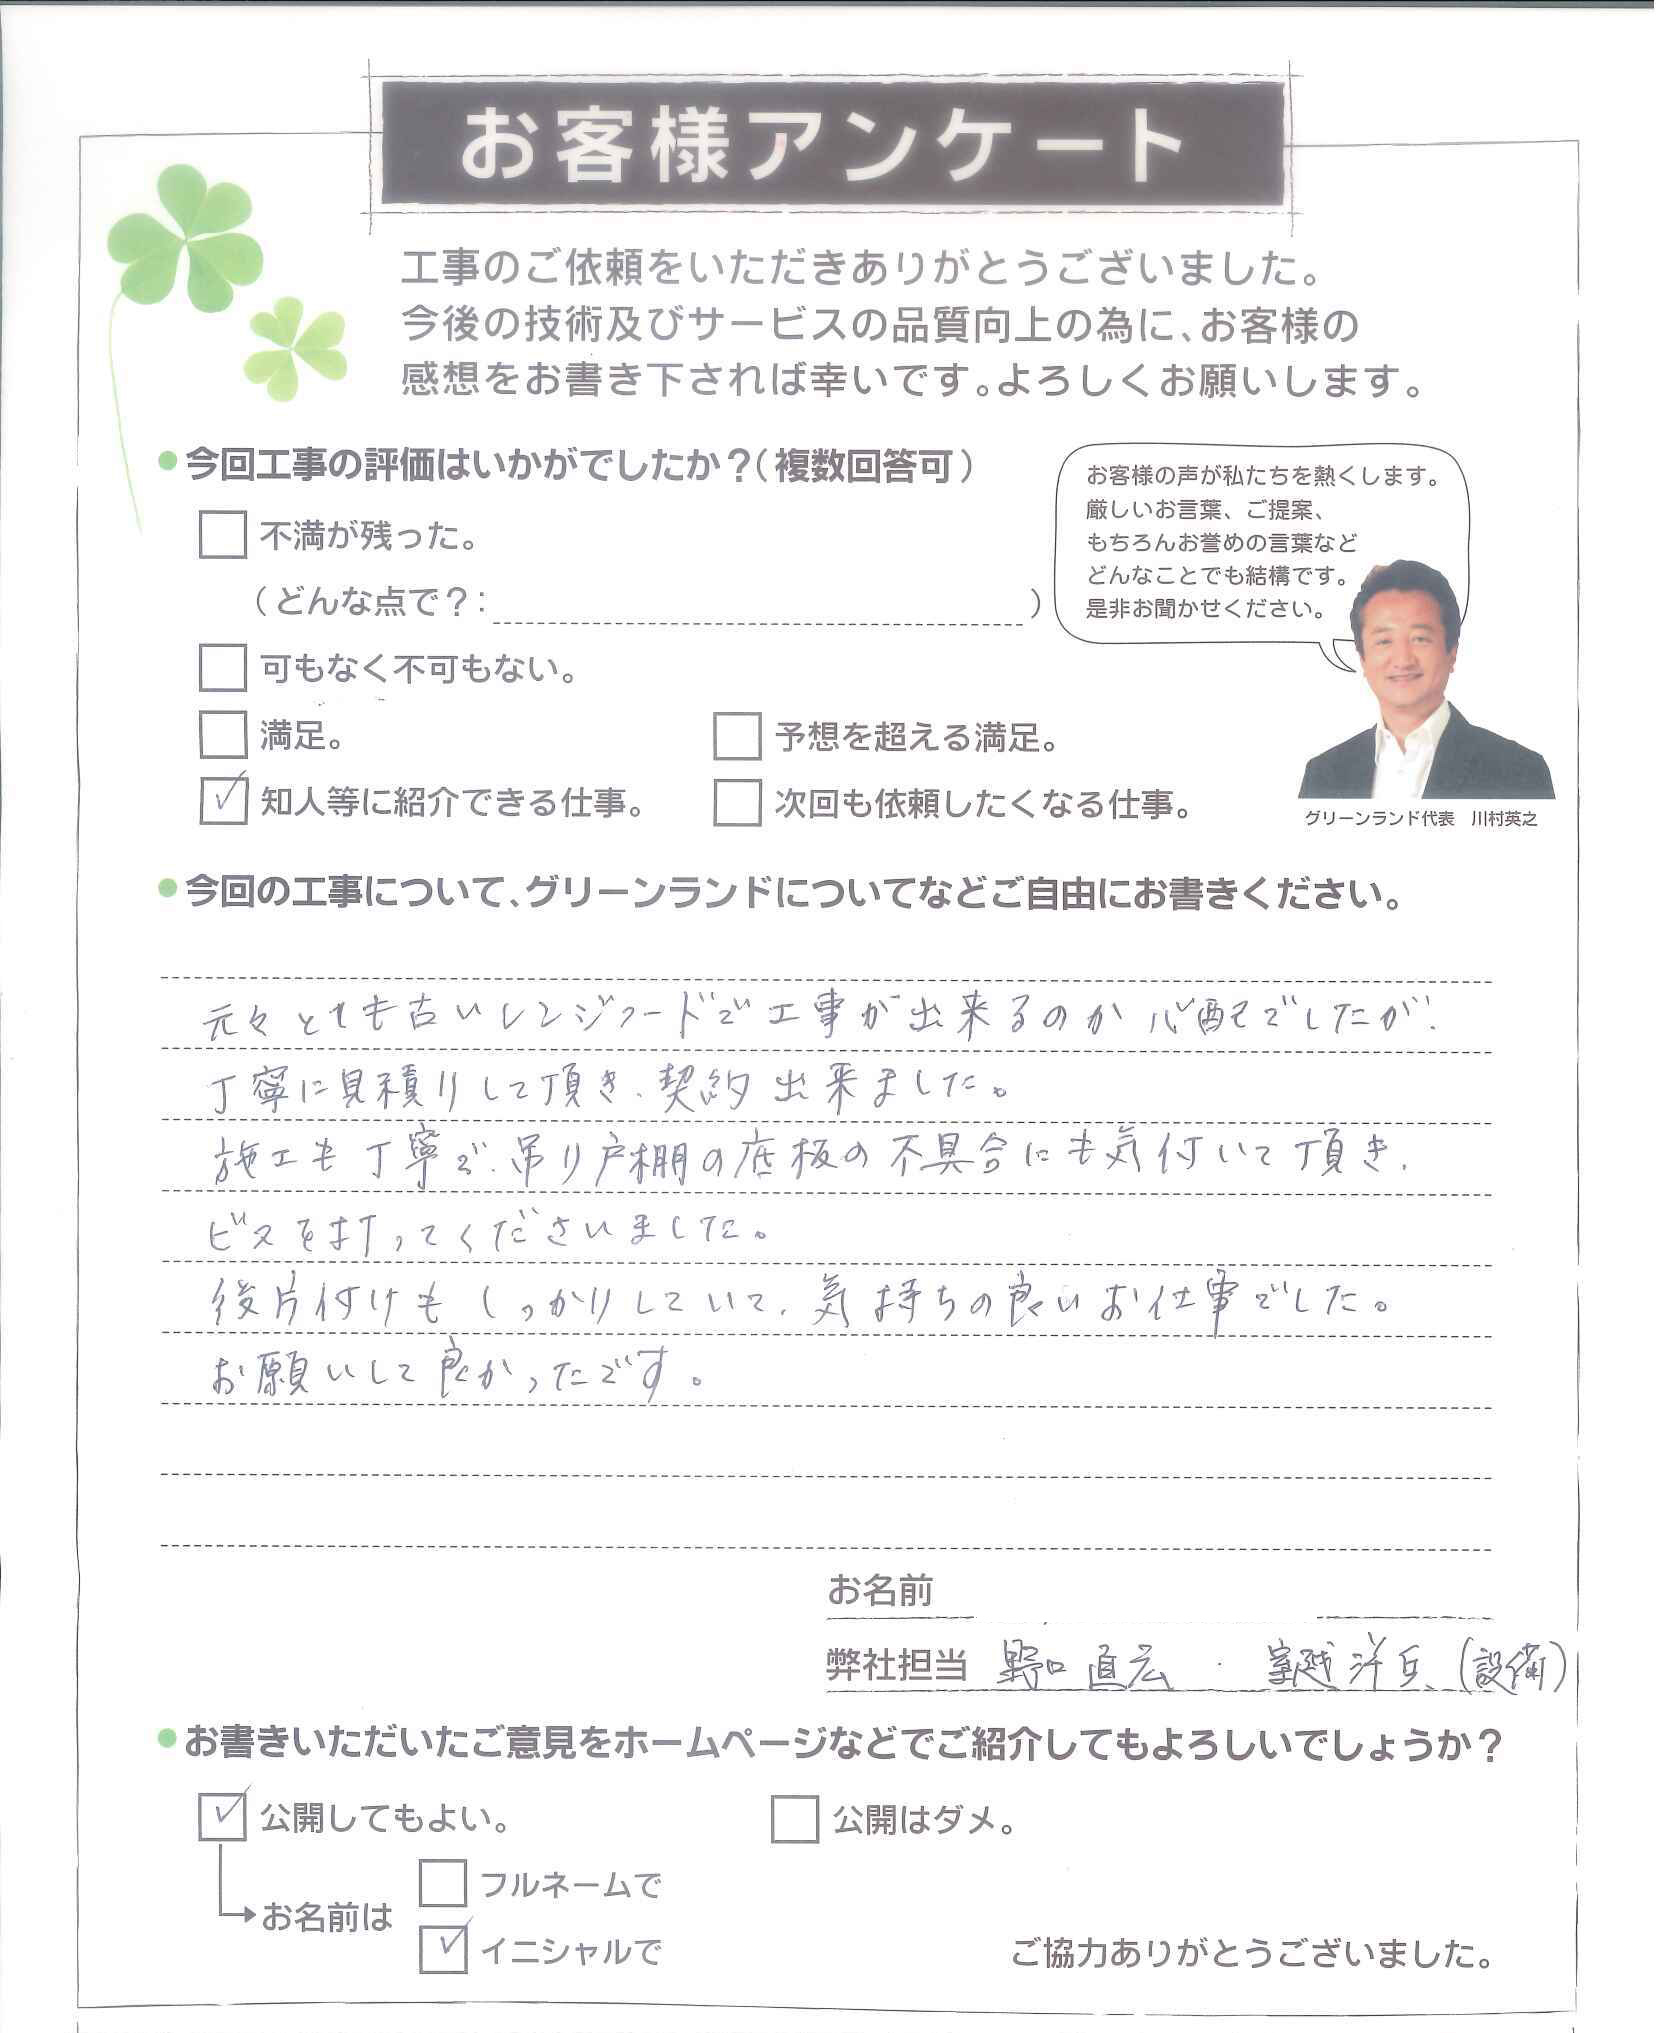 お客様アンケート
工事のご依頼をいただきありがとうございました。
今後の技術及びサービスの品質向上の為に、お客様の
感想をお書き下されば幸いです。よろしくお願いします。
●今回工事の評価はいかがでしたか？（複数回答可）
□ 不満が残った。
（どんな点で？： ）
□ 可もなく不可もない。
□ 満足。 □ 予想を超える満足。
☑ 知人等に紹介できる仕事。 □ 次回も依頼したくなる仕事。
お客様の声が私たちを熱くします。
厳しいお言葉、ご提案、
もちろんお誉めの言葉など
どんなことでも結構です。
是非お聞かせください。
グリーンランド代表 川村英之
●今回の工事について、グリーンランドについてなどご自由にお書きください。
元々とても古いレンジフードで工事が出来るのか心配でしたが、
丁寧に見積りして頂き、契約出来ました。
施工も丁寧で、吊り戸棚の底板の不具合にも気付いて頂き、
ビスを打ってくださいました。
後片付けもしっかりしていて、気持ちの良いお仕事でした。
お願いして良かったです。
お名前
弊社担当 野口直広・室越洋丘(設備)
●お書きいただいたご意見をホームページなどでご紹介してもよろしいでしょうか？
☑ 公開してもよい。 □ 公開はダメ。
お名前は
□ フルネームで
☑ イニシャルで
ご協力ありがとうございました。